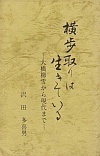 横歩取りは
生きている
―大橋柳雪から現代まで―
沢田多喜男